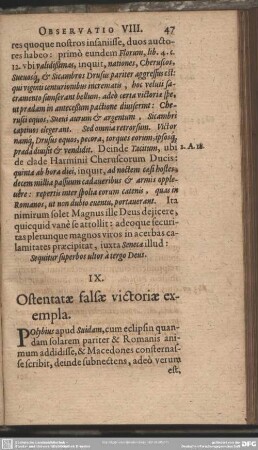 OBSERVATIO VIII. 47
res quoque nostros insaniisse, duos aucto-
res habeo: primò eundem Florum, lib. 4. c.
12. vbi validissimas, inquit, nationes, Cheruscos,
Sueuosq́, & Sicambros Drusus pariter aggressus est:
qui viginti centurionibus incrematis, hoc veluti sa-
cramento sumserant bellum, adeò certa victoriæ spe,
ut prædam in antecessum pactione diuiserint: Che-
rusci equos, Sueui aurum & argentum, Sicambri
captiuos elegerant. Sed omnia retrorsum. Victor
namq́, Drusus equos, pecora, torques eorum, ipsosq́,
præda diuisit & vendidit. Deinde Tacitum, ubi
1. A. 18.
de clade Harminii Cheruscorum Ducis:
quinta ab hora diei, inquit, ad noctem cæsi hostes,
decem millia passuum cadaueribus & armis opple-
uêre: repertis inter spolia eorum catenis, quas in
Romanos, ut non dubio euentu, portauerant. Ita
nimirum solet Magnus ille Deus dejicere,
quicquid vanè se attollit: adeoque securi-
tas plerunque magnos viros in acerbas ca-
lamitates præcipitat, iuxta Seneca illud:
Sequitur superbos ultor à tergo Deus.
IX.
Ostentatæ falsæ victoriæ ex-
empla.
Polybius apud Suidam, cum eclipsin quan-
dam solarem pariter & Romanis ani-
mum addidisse, & Macedones consternas-
se scribit, deinde subnectens, adeò verum
est,